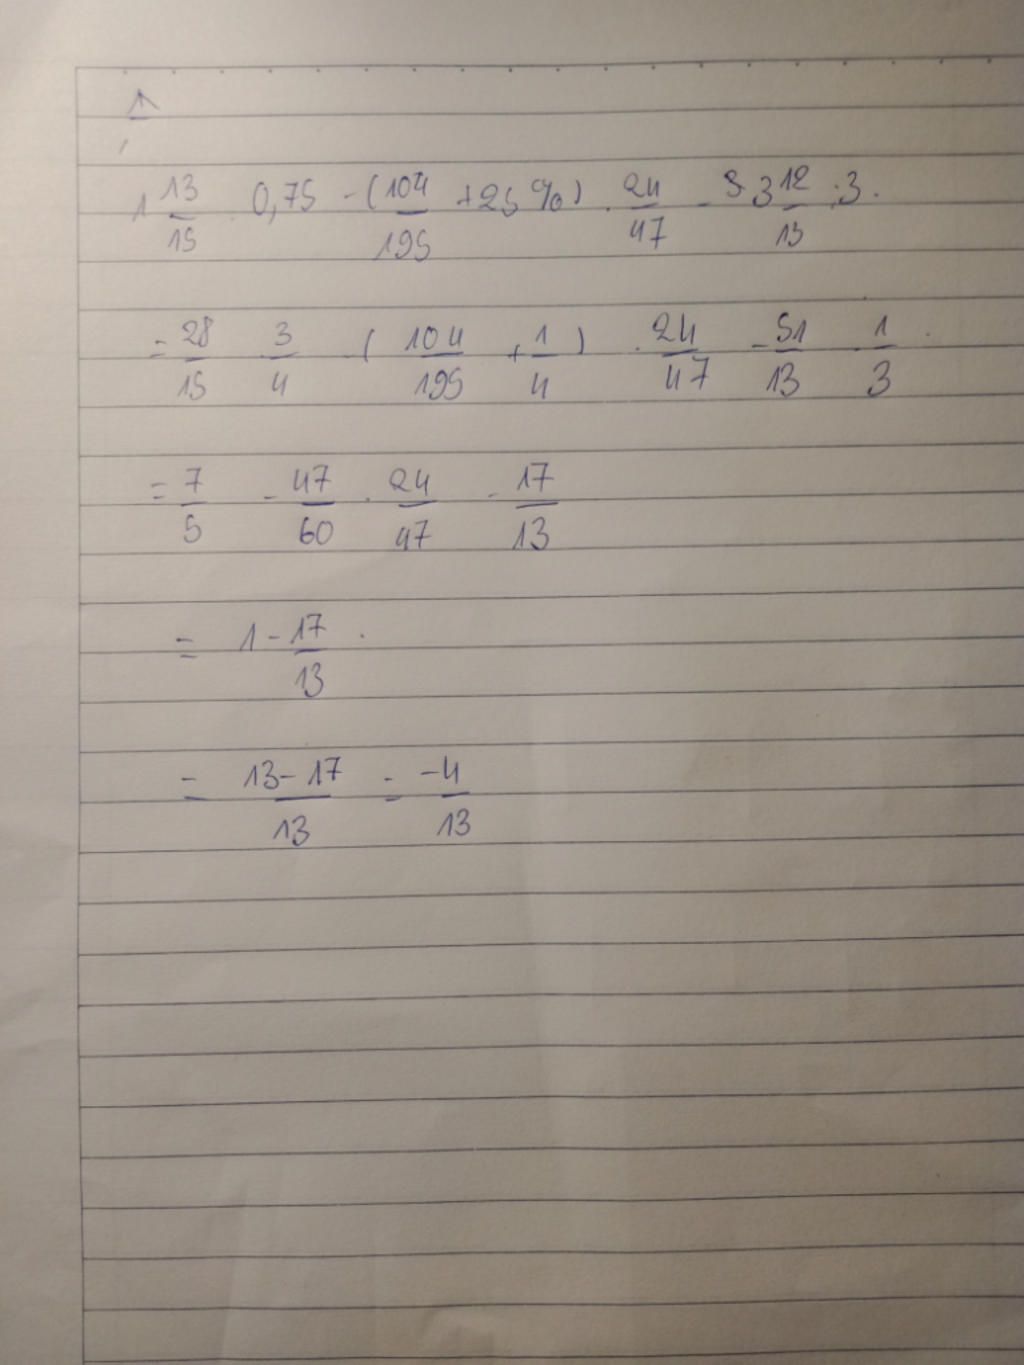 1 13/15 . 0,75 - (104/195 + 25 %) . 24/47 - 3 12/13 : 3 .
= 28/15 . 3/4 - (104/195 + 1/4) . 24/47 - 51/13 . 1/3 .
= 7/5 - 47/60 . 24/47 - 17/13
= 1 - 17/13 .
= 13-17/13 = -4/13